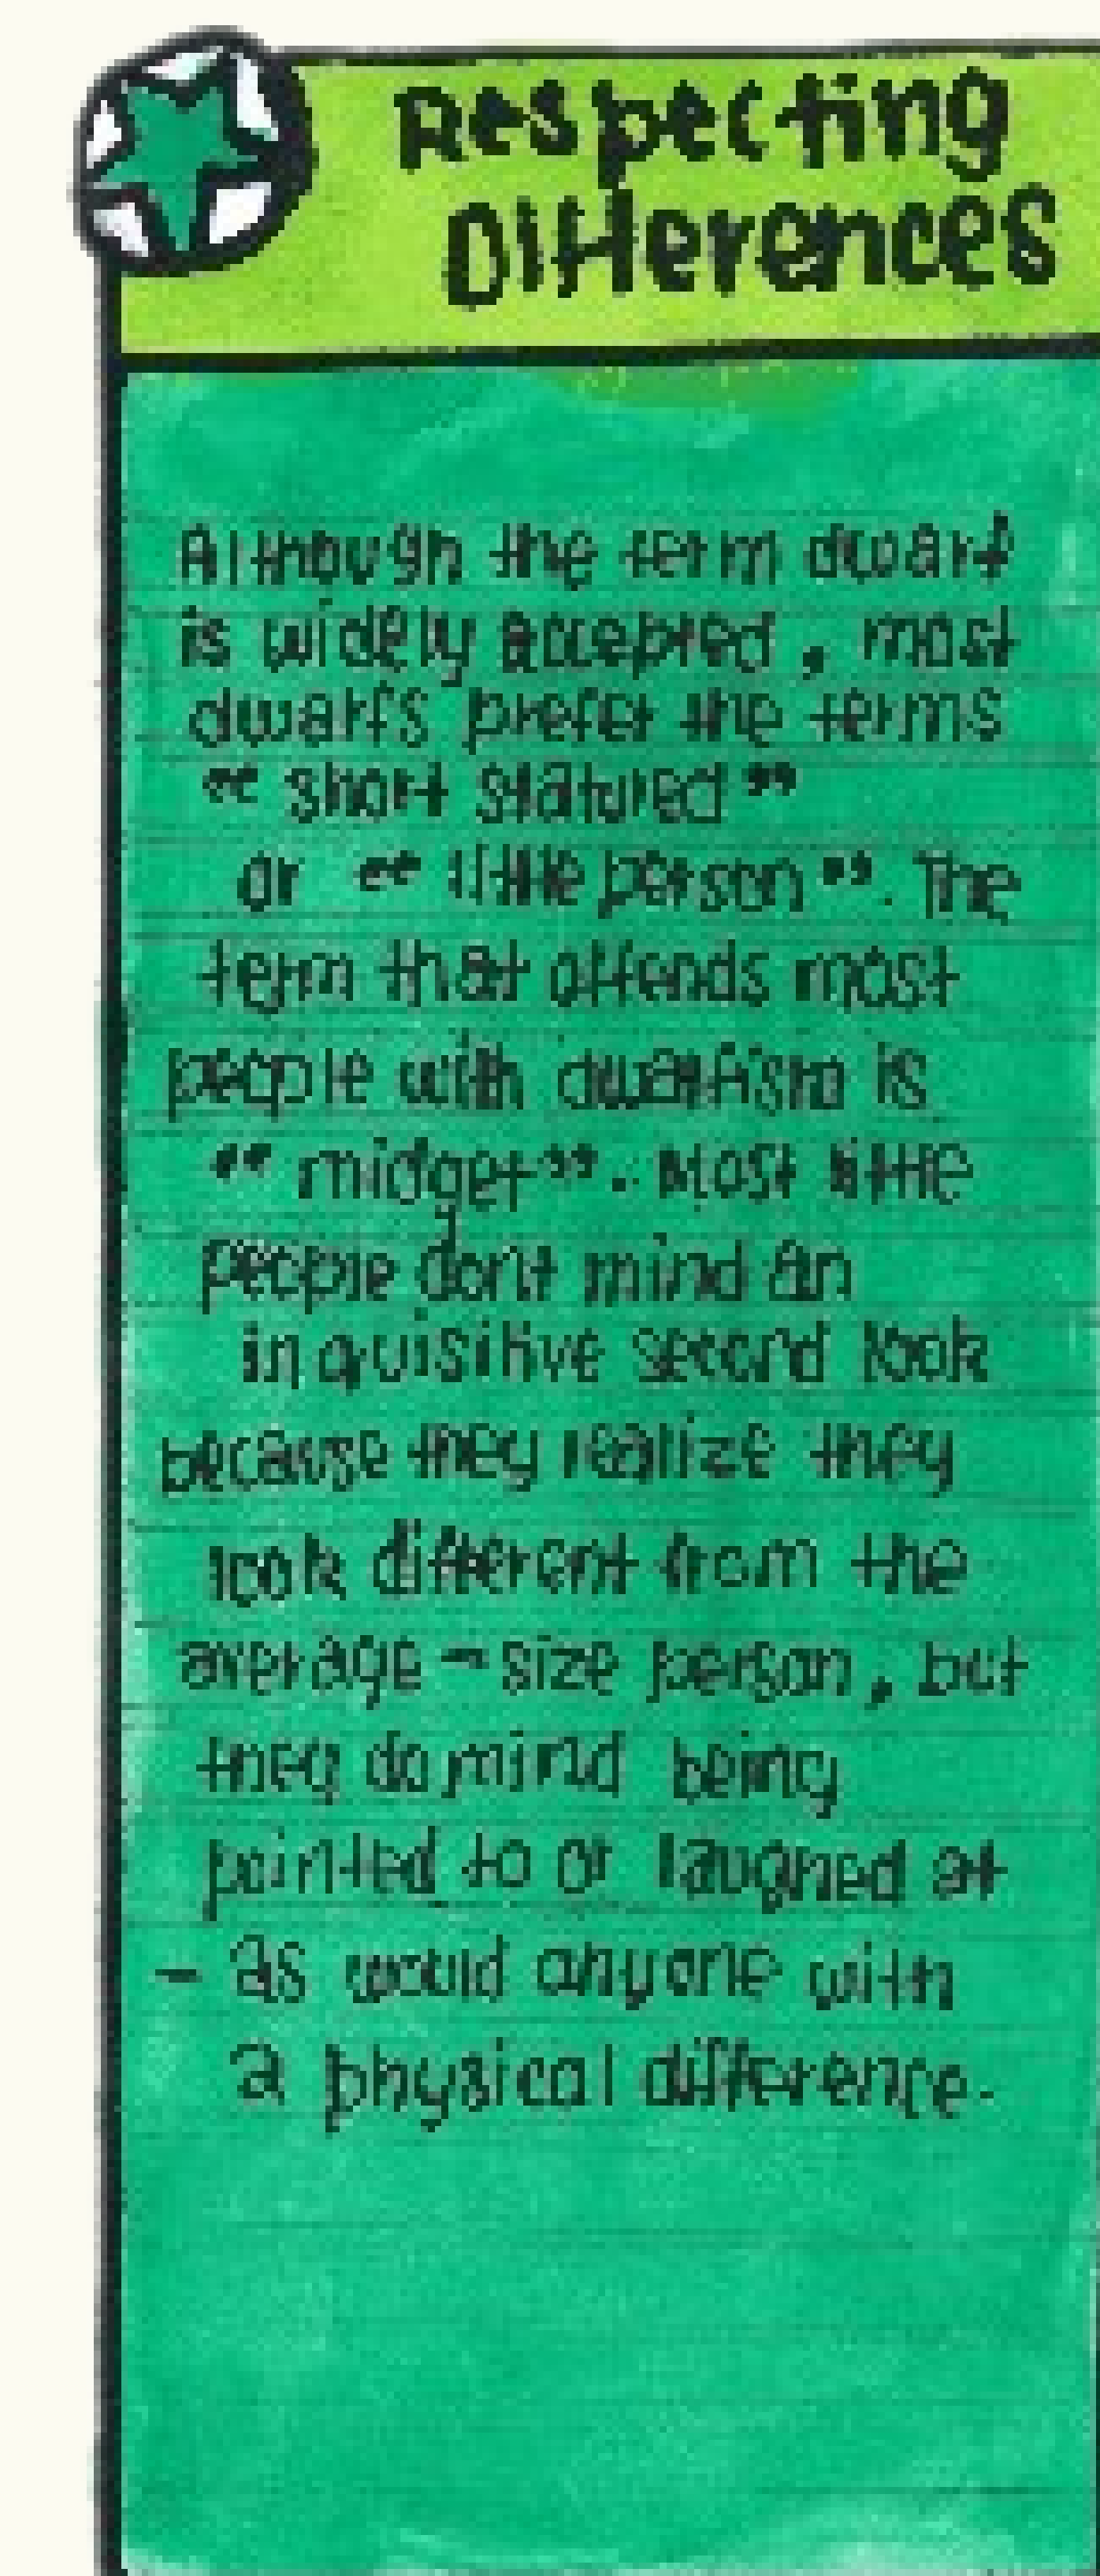 Respecting
Differences
Although the term dwarf
is widely accepted, most
dwarfs prefer the terms
"short statured"
or "little person". The
term that offends most
people with dwarfism is
"midget". Most little
people dont mind an
inquisitive second look
because they realize they
look different from the
average-size person, but
they do mind being
pointed to or laughed at
- as would anyone with
a physical difference.